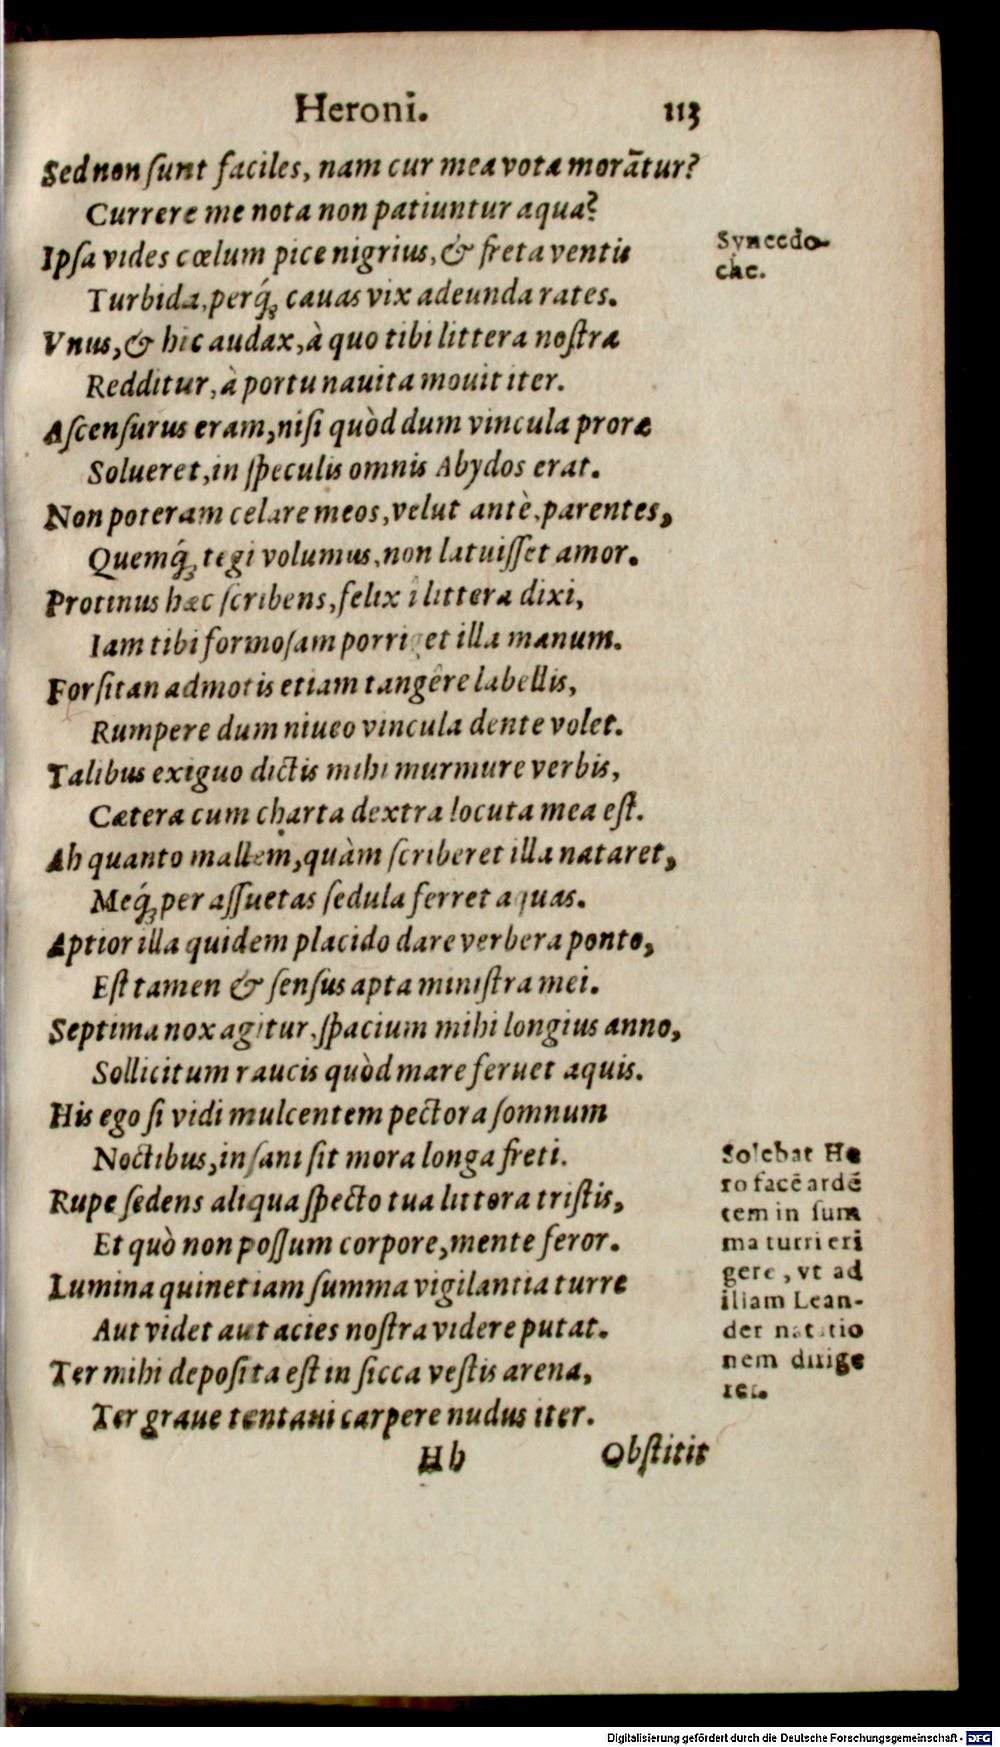 Heroni. 113
Sed non ſunt faciles, nam cur mea vota morātur?
Currere me nota non patiuntur aqua?
Ipſa vides cœlum pice nigrius, & freta ventis
Turbida, perq́ꝫ cauas vix adeunda rates.
Vnus, & hic audax, à quo tibi littera noſtra
Redditur, à portu nauita mouit iter.
Aſcenſurus eram, niſi quòd dum vincula proræ
Solueret, in ſpeculis omnis Abydos erat.
Non poteram celare meos, velut antè, parentes,
Quemq́ꝫ tegi volumus, non latuiſſet amor.
Protinus hæc ſcribens, felix i littera dixi,
Iam tibi formoſam porriget illa manum.
Forſitan admotis etiam tangêre labellis,
Rumpere dum niueo vincula dente volet.
Talibus exiguo dictis mihi murmure verbis,
Cætera cum charta dextra locuta mea eſt.
Ah quanto mallem, quàm ſcriberet illa nataret,
Meq́ꝫ per aſſuetas ſedula ferret aquas.
Aptior illa quidem placido dare verbera ponto,
Eſt tamen & ſenſus apta miniſtra mei.
Septima nox agitur, ſpacium mihi longius anno,
Sollicitum raucis quòd mare feruet aquis.
His ego ſi vidi mulcentem pectora ſomnum
Noctibus, inſani ſit mora longa freti.
Rupe ſedens aliqua ſpecto tua littora triſtis,
Et quò non poſſum corpore, mente feror.
Lumina quinetiam ſumma vigilantia turre
Aut videt aut acies noſtra videre putat.
Ter mihi depoſita eſt in ſicca veſtis arena,
Ter graue tentaui carpere nudus iter.
Hb Obſtitit
Synecdo-
che.
Solebat He
ro facē ardē
tem in ſum
ma turri eri
gere, vt ad
illam Lean-
der natatio
nem dirige
ret.
Digitalisierung gefördert durch die Deutsche Forschungsgemeinschaft - DFG